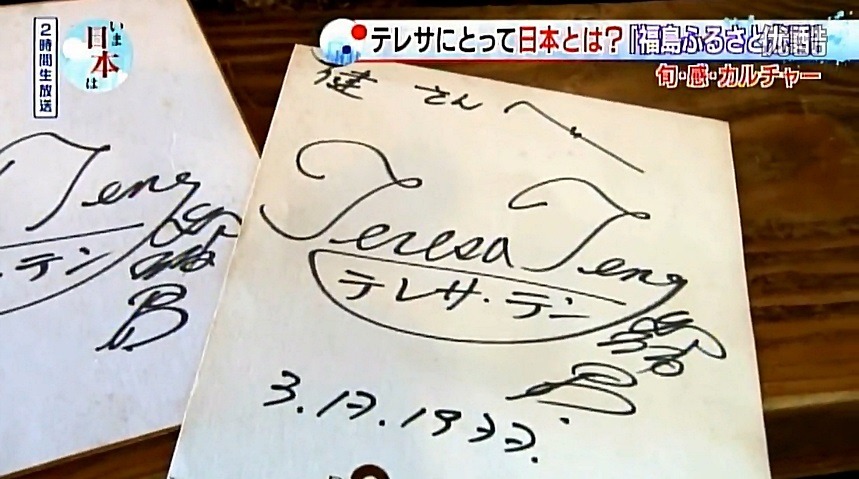 いま
日本
は
2時間生放送
テレサにとって日本とは?「福島ふるさと
旬・感・カルチャー
健 さん へ
Teresa Teng
テレサ・テン
3.17.1977.
Teng
・テン